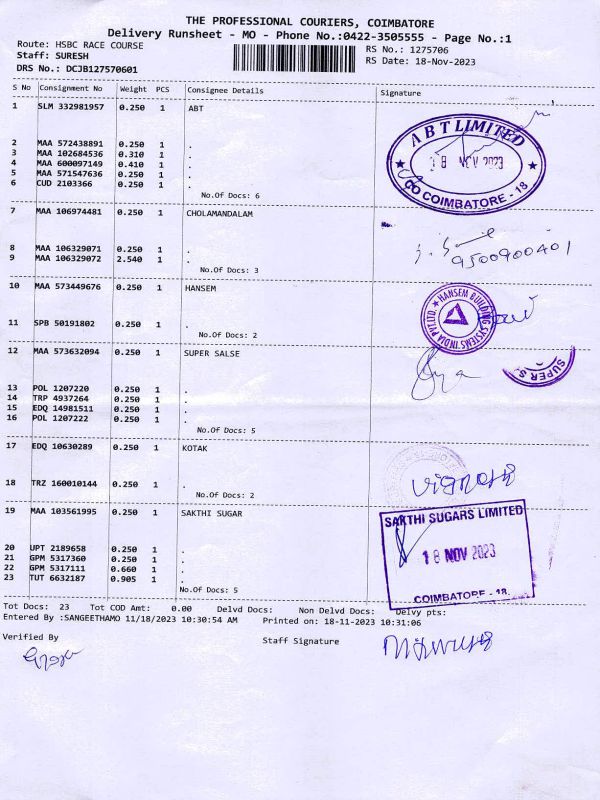 THE PROFESSIONAL COURIERS, COIMBATORE
Delivery Runsheet - MO - Phone No.:0422-3505555 - Page No.:1
Route: HSBC RACE COURSE RS No.: 1275706
Staff: SURESH RS Date: 18-Nov-2023
DRS No.: DCJB127570601
S No Consignment No Weight PCS Consignee Details Signature
1 SLM 332981957 0.250 1 ABT
ABT LIMITED
18 NOV 2023
COIMBATORE - 18
2 MAA 572438891 0.250 1 .
3 MAA 102684536 0.310 1 .
4 MAA 600097149 0.410 1 .
5 MAA 571547636 0.250 1 .
6 CUD 2103366 0.250 1 .
No.Of Docs: 6
7 MAA 106974481 0.250 1 CHOLAMANDALAM
9500900401
8 MAA 106329071 0.250 1 .
9 MAA 106329072 2.540 1 .
No.Of Docs: 3
10 MAA 573449676 0.250 1 HANSEM
HANSEM BUILDING SYSTEMS INDIA PVT LTD.
11 SPB 50191802 0.250 1 .
No.Of Docs: 2
12 MAA 573632094 0.250 1 SUPER SALSE
SUPER S
13 POL 1207220 0.250 1 .
14 TRP 4937264 0.250 1 .
15 EDQ 14981511 0.250 1 .
16 POL 1207222 0.250 1 .
No.Of Docs: 5
17 EDQ 10630289 0.250 1 KOTAK
18 TRZ 160010144 0.250 1 .
No.Of Docs: 2
19 MAA 103561995 0.250 1 SAKTHI SUGAR
SAKTHI SUGARS LIMITED
18 NOV 2023
COIMBATORE - 18.
20 UPT 2189658 0.250 1 .
21 GPM 5317360 0.250 1 .
22 GPM 5317111 0.660 1 .
23 TUT 6632187 0.905 1 .
No.Of Docs: 5
Tot Docs: 23 Tot COD Amt: 0.00 Delvd Docs: Non Delvd Docs: Delvy pts:
Entered By :SANGEETHAMO 11/18/2023 10:30:54 AM Printed on: 18-11-2023 10:31:06
Verified By Staff Signature